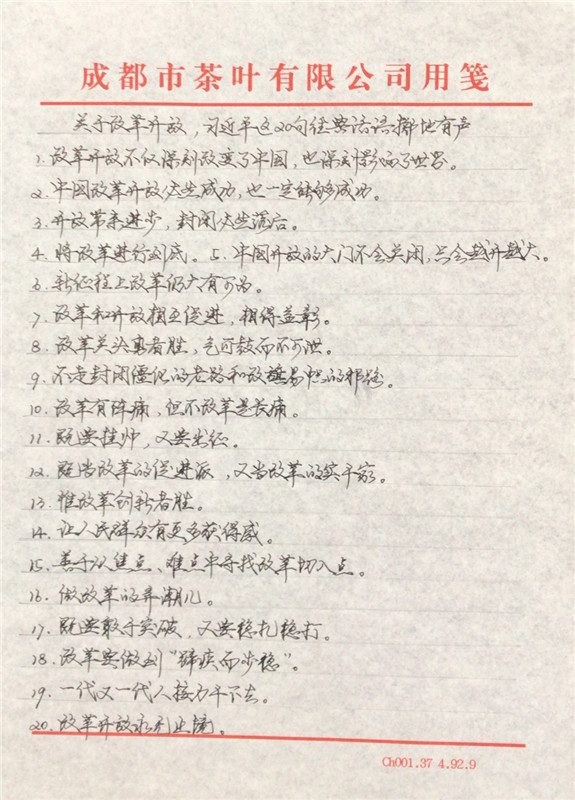 成都市茶叶有限公司用笺
关于改革开放，习近平这20句经典话语掷地有声
1. 改革开放不仅深刻改变了中国，也深刻影响了世界。
2. 中国改革开放必然成功，也一定能够成功。
3. 开放带来进步，封闭必然落后。
4. 将改革进行到底。5. 中国开放的大门不会关闭，只会越开越大。
6. 新征程上改革仍大有可为。
7. 改革和开放相互促进，相得益彰。
8. 改革关头勇者胜，气可鼓而不可泄。
9. 不走封闭僵化的老路和改旗易帜的邪路。
10. 改革有阵痛，但不改革是长痛。
11. 既要挂帅，又要出征。
12. 既当改革的促进派，又当改革的实干家。
13. 惟改革创新者胜。
14. 让人民群众有更多获得感。
15. 善于从焦点、难点中寻找改革切入点。
16. 做改革的弄潮儿。
17. 既要敢于突破，又要稳扎稳打。
18. 改革要做到“蹄疾而步稳”。
19. 一代又一代人接力干下去。
20. 改革开放永无止境。
Ch001.37 4.92.9